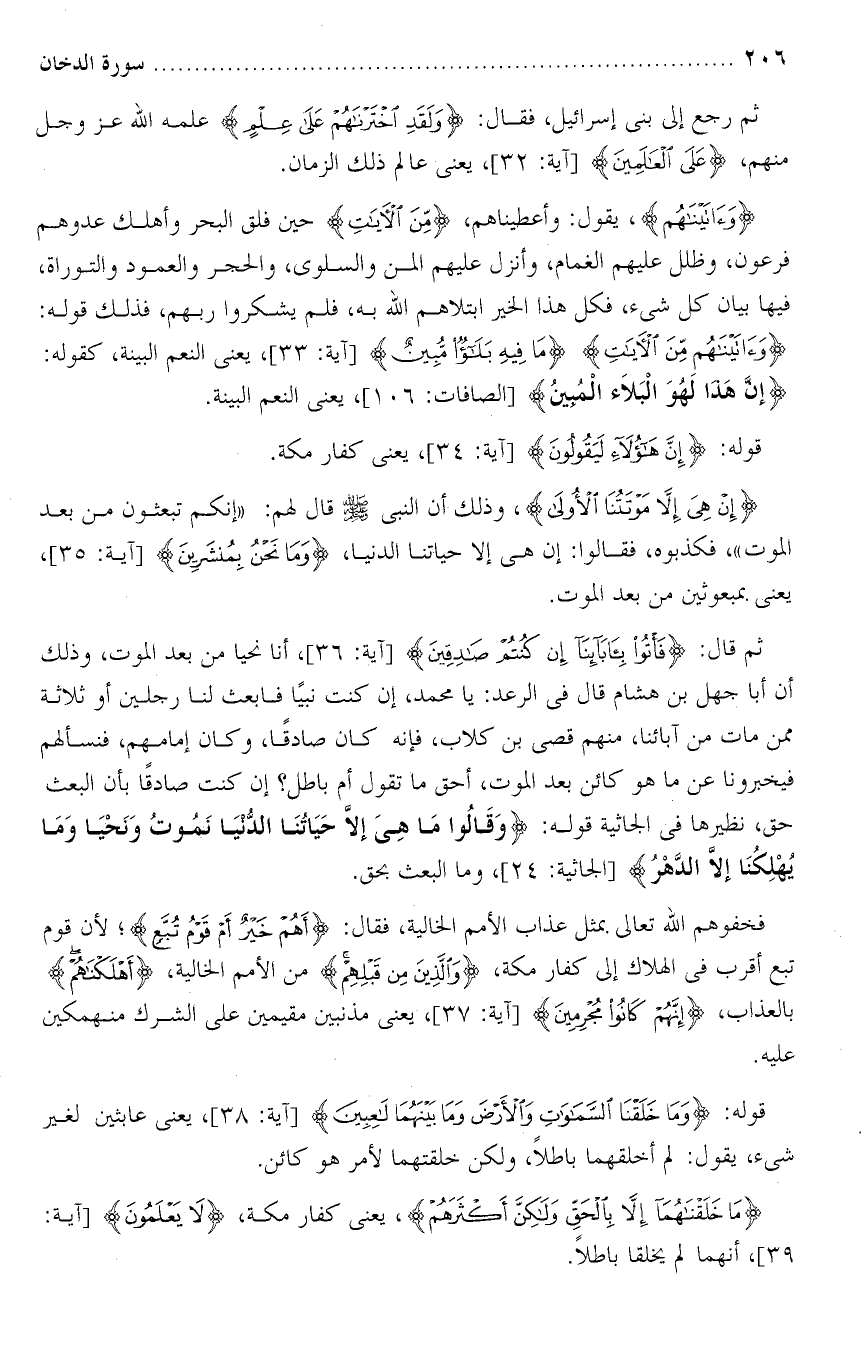 ٢٠٦ ........................................................................ سورة الدخان
ثم رجع إلى بنى إسرائيل، فقال: ﴿وَلَقَدِ ٱخْتَرْنَٰهُمْ عَلَىٰ عِلْمٍ﴾ علمه الله عز وجل
منهم، ﴿عَلَى ٱلْعَٰلَمِينَ﴾ [آية: ٣٢]، يعنى عالم ذلك الزمان.
﴿وَءَاتَيْنَٰهُم﴾، يقول: وأعطيناهم، ﴿مِّنَ ٱلْأَيَٰتِ﴾ حين فلق البحر وأهلك عدوهم
فرعون، وظلل عليهم الغمام، وأنزل عليهم المن والسلوى، والحجر والعمود والتوراة،
فيها بيان كل شىء، فكل هذا الخير ابتلاهم الله به، فلم يشكروا ربهم، فذلك قوله:
﴿وَءَاتَيْنَٰهُم مِّنَ ٱلْأَيَٰتِ﴾ ﴿مَا فِيهِ بَلَٰٓؤٌا۟ مُّبِينٌ﴾ [آية: ٣٣]، يعنى النعم البينة، كقوله:
﴿إِنَّ هَذَا لَهُوَ الْبَلاَء الْمُبِينُ﴾ [الصافات: ١٠٦]، يعنى النعم البينة.
قوله: ﴿إِنَّ هَٰٓؤُلَآءِ لَيَقُولُونَ﴾ [آية: ٣٤]، يعنى كفار مكة.
﴿إِنْ هِىَ إِلَّا مَوْتَتُنَا ٱلْأُولَىٰ﴾، وذلك أن النبى ﷺ قال لهم: «إنكم تبعثون من بعد
الموت»، فكذبوه، فقالوا: إن هى إلا حياتنا الدنيا، ﴿وَمَا نَحْنُ بِمُنشَرِينَ﴾ [آية: ٣٥]،
يعنى بمبعوثين من بعد الموت.
ثم قال: ﴿فَأْتُوا۟ بِـَٔابَآئِنَآ إِن كُنتُمْ صَٰدِقِينَ﴾ [آية: ٣٦]، أنا نحيا من بعد الموت، وذلك
أن أبا جهل بن هشام قال فى الرعد: يا محمد، إن كنت نبيًا فابعث لنا رجلين أو ثلاثة
ممن مات من آبائنا، منهم قصى بن كلاب، فإنه كان صادقًا، وكان إمامهم، فنسألهم
فيخبرونا عن ما هو كائن بعد الموت، أحق ما تقول أم باطل؟ إن كنت صادقًا بأن البعث
حق، نظيرها فى الجاثية قوله: ﴿وَقَالُوا مَا هِىَ إِلاَّ حَيَاتُنَا الدُّنْيَا نَمُوتُ وَنَحْيَا وَمَا
يُهْلِكُنَا إِلاَّ الدَّهْرُ﴾ [الجاثية: ٢٤]، وما البعث بحق.
فخفوهم الله تعالى بمثل عذاب الأمم الخالية، فقال: ﴿أَهُمْ خَيْرٌ أَمْ قَوْمُ تُبَّعٍ﴾؛ لأن قوم
تبع أقرب فى الهلاك إلى كفار مكة، ﴿وَٱلَّذِينَ مِن قَبْلِهِمْ ۚ﴾ من الأمم الخالية، ﴿أَهْلَكْنَٰهُمْ ۖ﴾
بالعذاب، ﴿إِنَّهُمْ كَانُوا۟ مُجْرِمِينَ﴾ [آية: ٣٧]، يعنى مذنبين مقيمين على الشرك منهمكين
عليه.
قوله: ﴿وَمَا خَلَقْنَا ٱلسَّمَٰوَٰتِ وَٱلْأَرْضَ وَمَا بَيْنَهُمَا لَٰعِبِينَ﴾ [آية: ٣٨]، يعنى عابثين لغير
شىء، يقول: لم أخلقهما باطلاً، ولكن خلقتهما لأمر هو كائن.
﴿مَا خَلَقْنَٰهُمَآ إِلَّا بِٱلْحَقِّ وَلَٰكِنَّ أَكْثَرَهُمْ﴾، يعنى كفار مكة، ﴿لَا يَعْلَمُونَ﴾ [آية:
٣٩]، أنهما لم يخلقا باطلاً.